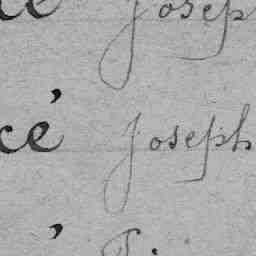 cé Joseph
cé Joseph